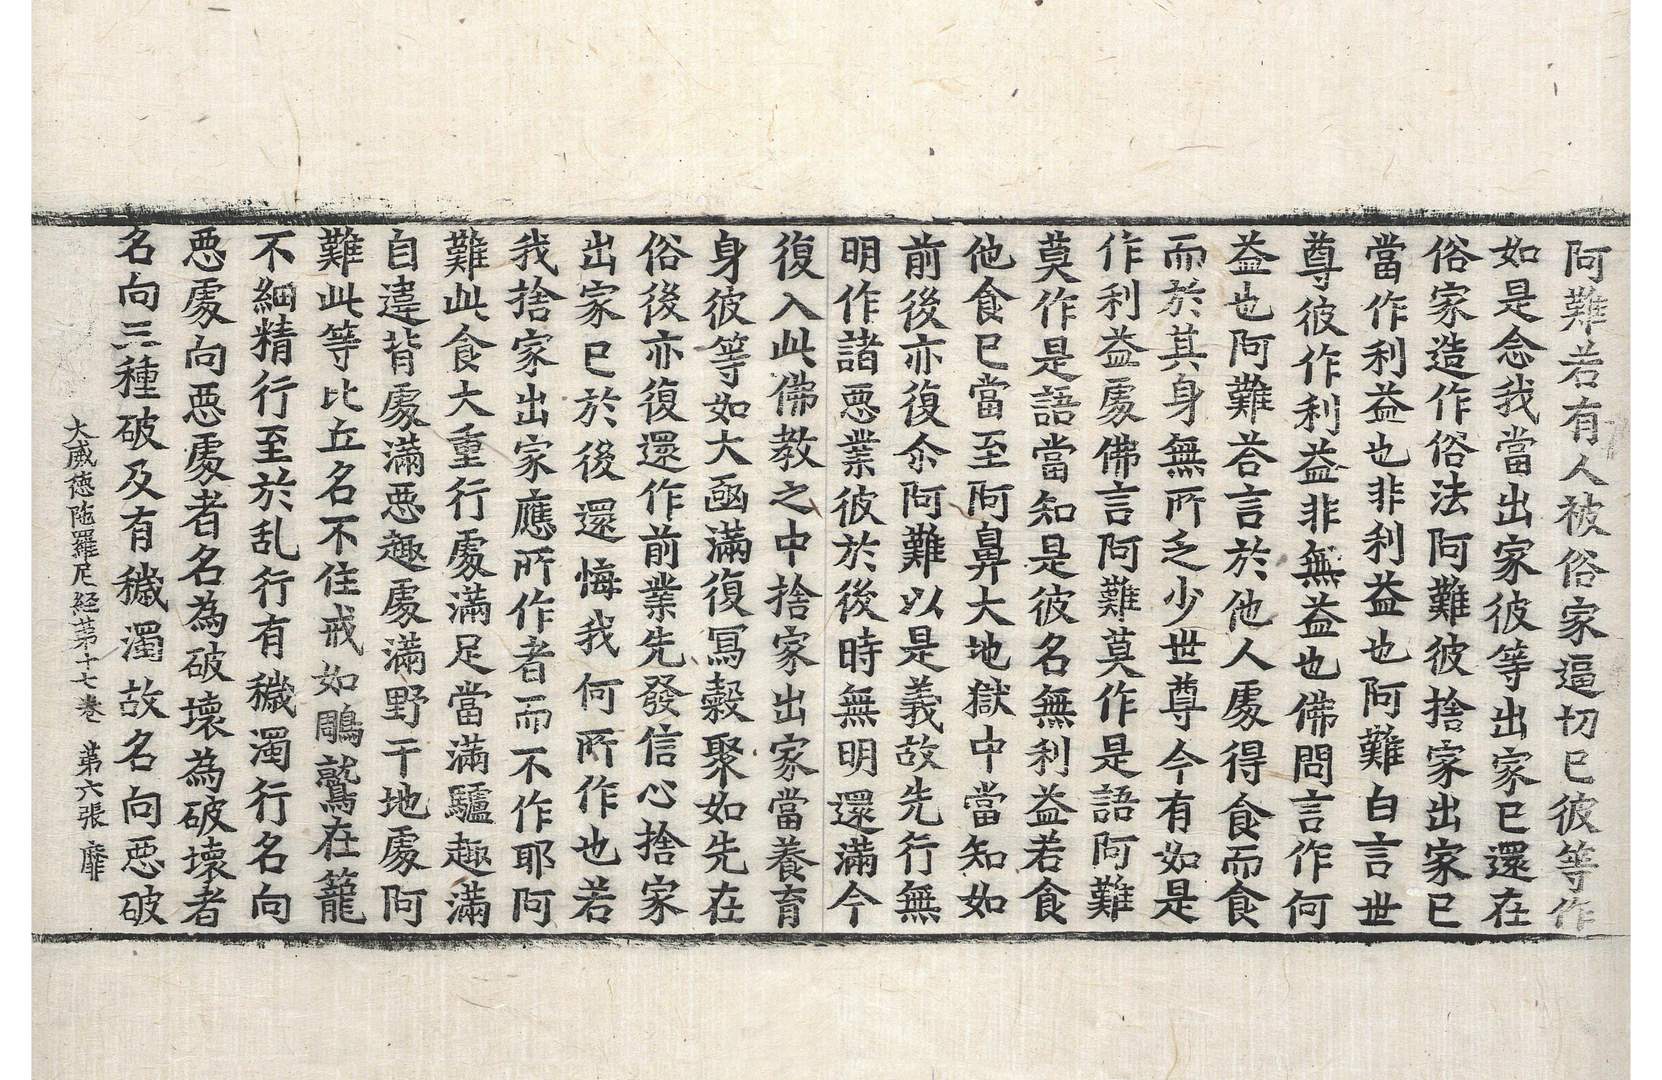 阿難若有人被俗家逼切已彼等作
如是念我當出家彼等出家已還在
俗家造作俗法阿難彼捨家出家已
當作利益也非利益也阿難白言世
尊彼作利益非無益也佛問言作何
益也阿難荅言於他人處得食而食
而於其身無所乏少世尊今有如是
作利益處佛言阿難莫作是語阿難
莫作是語當知是彼名無利益若食
他食已當至阿鼻大地獄中當知如
前後亦復尒阿難以是義故先行無
明作諸惡業彼於後時無明還滿今
復入此佛教之中捨家出家當養育
身彼等如大凾滿復冩穀聚如先在
俗後亦復還作前業先發信心捨家
出家已於後還悔我何所作也若
我捨家出家應所作者而不作耶阿
難此食大重行處滿足當滿驢趣滿
自違背處滿惡趣處滿野干地處阿
難此等比丘名不住戒如鵰鷲在籠
不細精行至於乱行有穢濁行名向
惡處向惡處者名為破壞為破壞者
名向三種破及有穢濁故名向惡破
大威德陁羅尼経苐十七巻 苐六張 靡